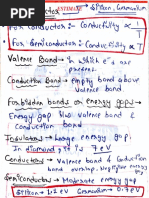 ESTIMATE
→ Silicon, Germanium
• For Conductors :- Conductivity ∝ 1/T
• For Semiconductors :- Conductivity ∝ T
Valence Band → in which e⁻s are present.
Conduction Band → empty band above valence band.
Forbidden bands or energy gap →
Energy gap b/w Valence band & Conduction band.
Insulators → Large energy gap.
In diamond, it is 7 eV
Conductors → Valence band & Conduction band overlap.
Semiconductors → Moderate energy gap
Silicon → 1.2 eV Germanium → 0.7 eV